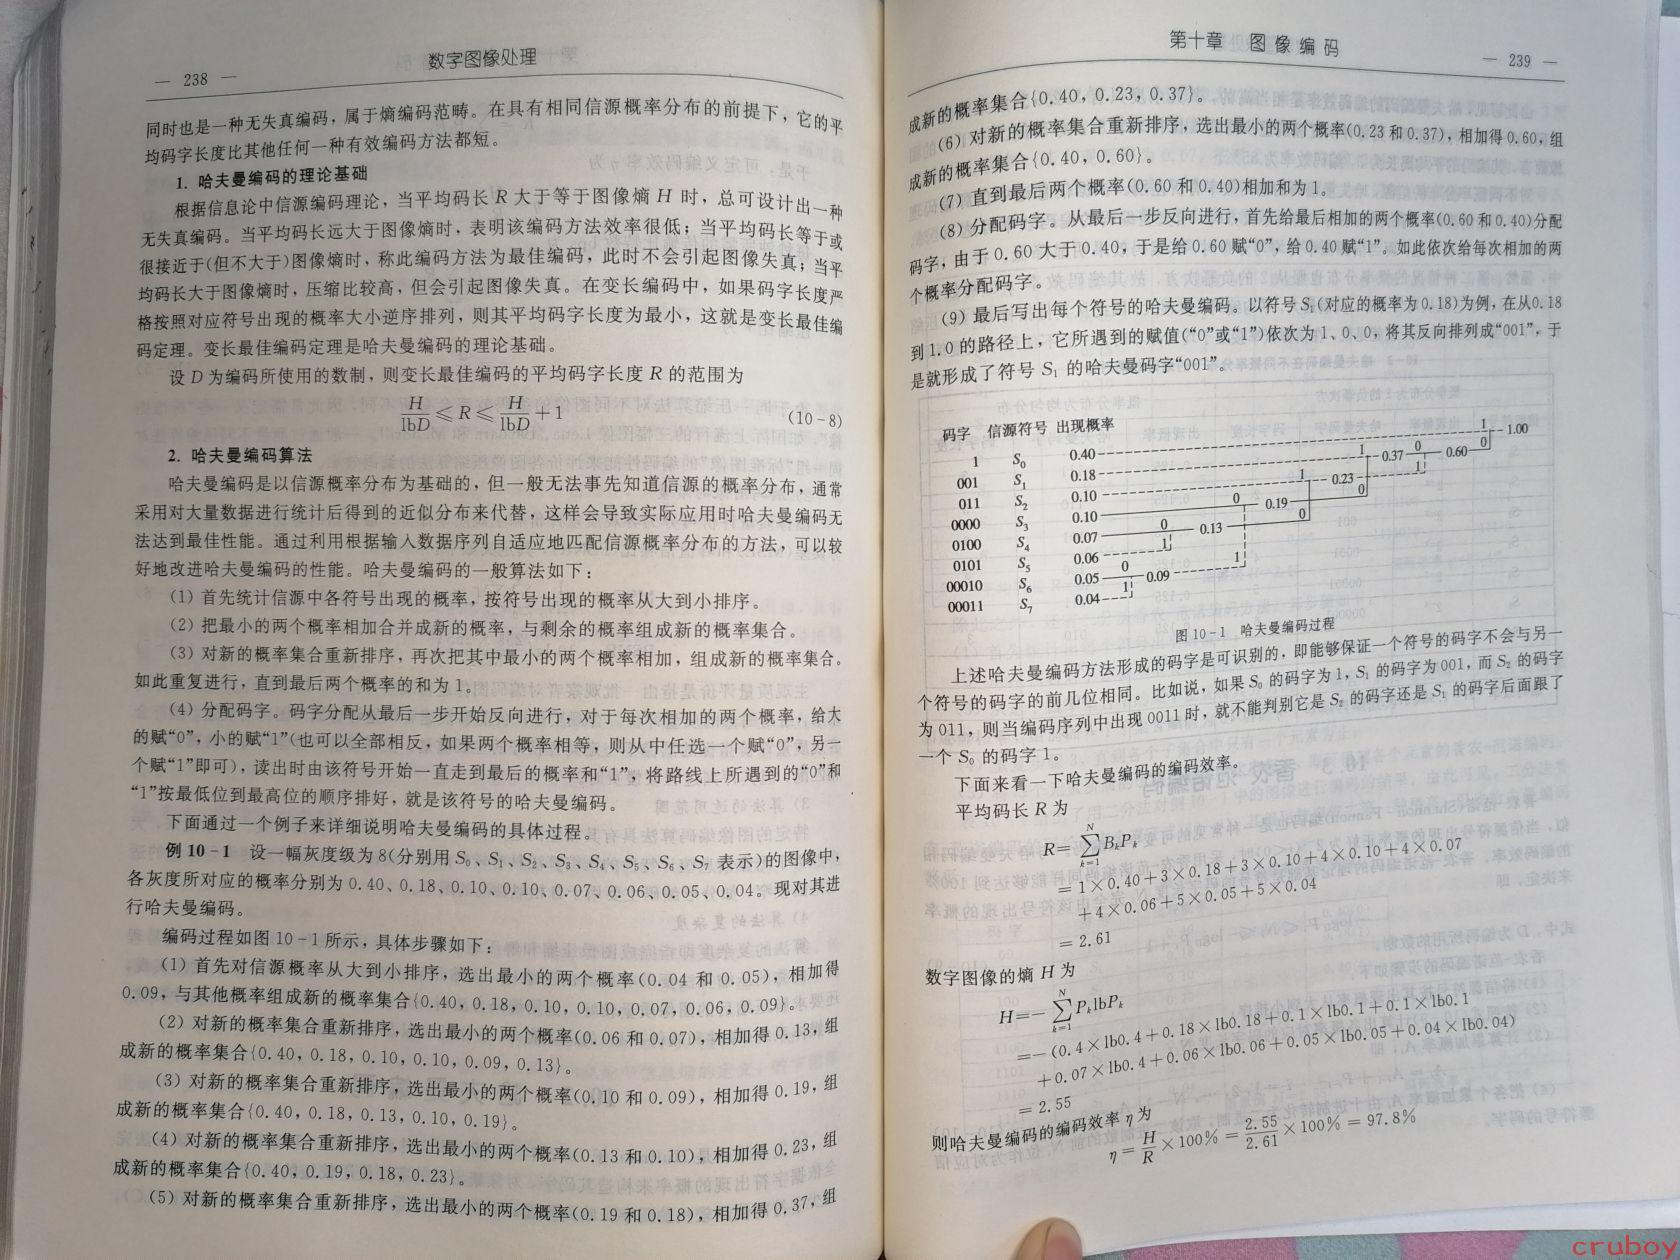 — 238 —
数字图像处理
同时也是一种无失真编码，属于熵编码范畴。在具有相同信源概率分布的前提下，它的平
均码字长度比其他任何一种有效编码方法都短。
1. 哈夫曼编码的理论基础
根据信息论中信源编码理论，当平均码长 R 大于等于图像熵 H 时，总可设计出一种
无失真编码。当平均码长远大于图像熵时，表明该编码方法效率很低；当平均码长等于或
很接近于(但不大于)图像熵时，称此编码方法为最佳编码，此时不会引起图像失真；当平
均码长大于图像熵时，压缩比较高，但会引起图像失真。在变长编码中，如果码字长度严
格按照对应符号出现的概率大小逆序排列，则其平均码字长度为最小，这就是变长最佳编
码定理。变长最佳编码定理是哈夫曼编码的理论基础。
设 D 为编码所使用的数制，则变长最佳编码的平均码字长度 R 的范围为
H/lbD ≤ R ≤ H/lbD + 1 (10-8)
2. 哈夫曼编码算法
哈夫曼编码是以信源概率分布为基础的，但一般无法事先知道信源的概率分布，通常
采用对大量数据进行统计后得到的近似分布来代替，这样会导致实际应用时哈夫曼编码无
法达到最佳性能。通过利用根据输入数据序列自适应地匹配信源概率分布的方法，可以较
好地改进哈夫曼编码的性能。哈夫曼编码的一般算法如下：
(1) 首先统计信源中各符号出现的概率，按符号出现的概率从大到小排序。
(2) 把最小的两个概率相加合并成新的概率，与剩余的概率组成新的概率集合。
(3) 对新的概率集合重新排序，再次把其中最小的两个概率相加，组成新的概率集合。
如此重复进行，直到最后两个概率的和为 1。
(4) 分配码字。码字分配从最后一步开始反向进行，对于每次相加的两个概率，给大
的赋“0”，小的赋“1”(也可以全部相反，如果两个概率相等，则从中任选一个赋“0”，另一
个赋“1”即可)，读出时由该符号开始一直走到最后的概率和“1”，将路线上所遇到的“0”和
“1”按最低位到最高位的顺序排好，就是该符号的哈夫曼编码。
下面通过一个例子来详细说明哈夫曼编码的具体过程。
例 10-1 设一幅灰度级为 8(分别用 S₀、S₁、S₂、S₃、S₄、S₅、S₆、S₇ 表示)的图像中，
各灰度所对应的概率分别为 0.40、0.18、0.10、0.10、0.07、0.06、0.05、0.04。现对其进
行哈夫曼编码。
编码过程如图 10-1 所示，具体步骤如下：
(1) 首先对信源概率从大到小排序，选出最小的两个概率(0.04 和 0.05)，相加得
0.09，与其他概率组成新的概率集合{0.40，0.18，0.10，0.10，0.07，0.06，0.09}。
(2) 对新的概率集合重新排序，选出最小的两个概率(0.06 和 0.07)，相加得 0.13，组
成新的概率集合{0.40，0.18，0.10，0.10，0.09，0.13}。
(3) 对新的概率集合重新排序，选出最小的两个概率(0.10 和 0.09)，相加得 0.19，组
成新的概率集合{0.40，0.18，0.13，0.10，0.19}。
(4) 对新的概率集合重新排序，选出最小的两个概率(0.13 和 0.10)，相加得 0.23，组
成新的概率集合{0.40，0.19，0.18，0.23}。
(5) 对新的概率集合重新排序，选出最小的两个概率(0.19 和 0.18)，相加得 0.37，组
第十章 图像编码
— 239 —
成新的概率集合{0.40，0.23，0.37}。
(6) 对新的概率集合重新排序，选出最小的两个概率(0.23 和 0.37)，相加得 0.60，组
成新的概率集合{0.40，0.60}。
(7) 直到最后两个概率(0.60 和 0.40)相加和为 1。
(8) 分配码字。从最后一步反向进行，首先给最后相加的两个概率(0.60 和 0.40)分配
码字，由于 0.60 大于 0.40，于是给 0.60 赋“0”，给 0.40 赋“1”。如此依次给每次相加的两
个概率分配码字。
(9) 最后写出每个符号的哈夫曼编码。以符号 S₁(对应的概率为 0.18)为例，在从 0.18
到 1.0 的路径上，它所遇到的赋值(“0”或“1”)依次为 1、0、0，将其反向排列成“001”，于
是就形成了符号 S₁ 的哈夫曼码字“001”。
码字 信源符号 出现概率
1 S₀ 0.40 1 1.00
001 S₁ 0.18 1 0.37 0 0.60 0
011 S₂ 0.10 1 0.23 1
0000 S₃ 0.10 0 0.19 0
0100 S₄ 0.07 0 0.13 0
0101 S₅ 0.06 1 1
00010 S₆ 0.05 0 0.09
00011 S₇ 0.04 1
图 10-1 哈夫曼编码过程
上述哈夫曼编码方法形成的码字是可识别的，即能够保证一个符号的码字不会与另一
个符号的码字的前几位相同。比如说，如果 S₀ 的码字为 1，S₁ 的码字为 001，而 S₂ 的码字
为 011，则当编码序列中出现 0011 时，就不能判别它是 S₂ 的码字还是 S₁ 的码字后面跟了
一个 S₀ 的码字 1。
下面来看一下哈夫曼编码的编码效率。
平均码长 R 为
R = ∑_{k=1}^{N} BₖPₖ
= 1×0.40+3×0.18+3×0.10+4×0.10+4×0.07
+4×0.06+5×0.05+5×0.04
= 2.61
数字图像的熵 H 为
H = −∑_{k=1}^{N} PₖlbPₖ
= −(0.4×lb0.4+0.18×lb0.18+0.1×lb0.1+0.1×lb0.1
+0.07×lb0.4+0.06×lb0.06+0.05×lb0.05+0.04×lb0.04)
= 2.55
则哈夫曼编码的编码效率 η 为
η = H/R ×100% = 2.55/2.61 ×100% = 97.8%
cruboy